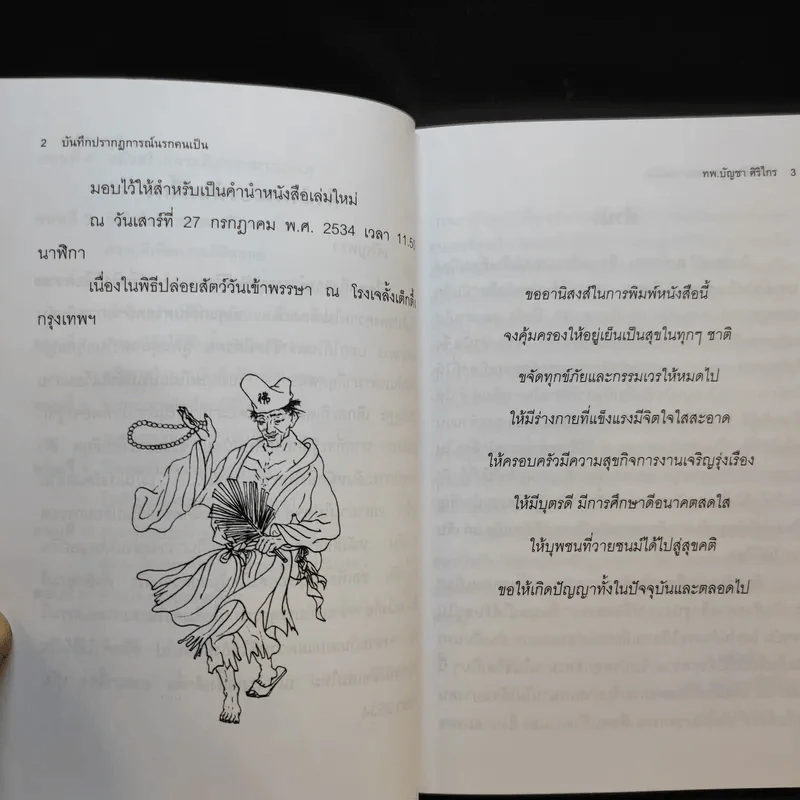 2 บันทึกปรากฏการณ์นรกคนเป็น
มอบไว้ให้สำหรับเป็นคำนำหนังสือเล่มใหม่
ณ วันเสาร์ที่ 27 กรกฎาคม พ.ศ. 2534 เวลา 11.50
นาฬิกา
เนื่องในพิธีปล่อยสัตว์วันเข้าพรรษา ณ โรงเจลั้งเต็กตึ๊ง
กรุงเทพฯ
佛
ทพ.บัญชา ศิริไกร 3
ขออานิสงส์ในการพิมพ์หนังสือนี้
จงคุ้มครองให้อยู่เย็นเป็นสุขในทุกๆ ชาติ
ขจัดทุกข์ภัยและกรรมเวรให้หมดไป
ให้มีร่างกายที่แข็งแรงมีจิตใจใสสะอาด
ให้ครอบครัวมีความสุขกิจการงานเจริญรุ่งเรือง
ให้มีบุตรดี มีการศึกษาดีอนาคตสดใส
ให้บุพชนที่วายชนม์ได้ไปสู่สุขคติ
ขอให้เกิดปัญญาทั้งในปัจจุบันและตลอดไป